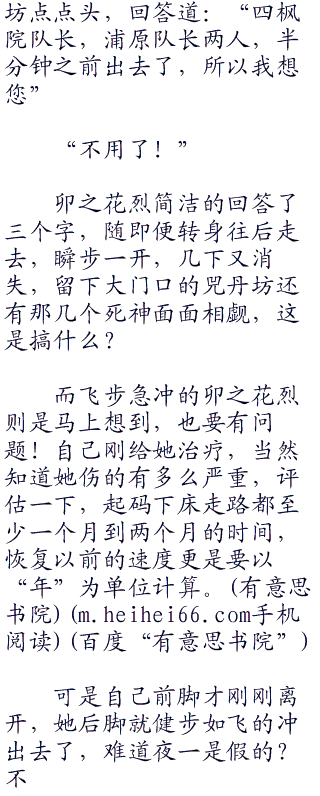 坊点点头，回答道：“四枫
院队长，浦原队长两人，半
分钟之前出去了，所以我想
您”
“不用了！”
卯之花烈简洁的回答了
三个字，随即便转身往后走
去，瞬步一开，几下又消
失，留下大门口的咒丹坊还
有那几个死神面面相觑，这
是搞什么？
而飞步急冲的卯之花烈
则是马上想到，也要有问
题！自己刚给她治疗，当然
知道她伤的有多么严重，评
估一下，起码下床走路都至
少一个月到两个月的时间，
恢复以前的速度更是要以
“年”为单位计算。(有意思
书院)(m.heihei66.com手机
阅读)(百度“有意思书院”)
可是自己前脚才刚刚离
开，她后脚就健步如飞的冲
出去了，难道夜一是假的？
不